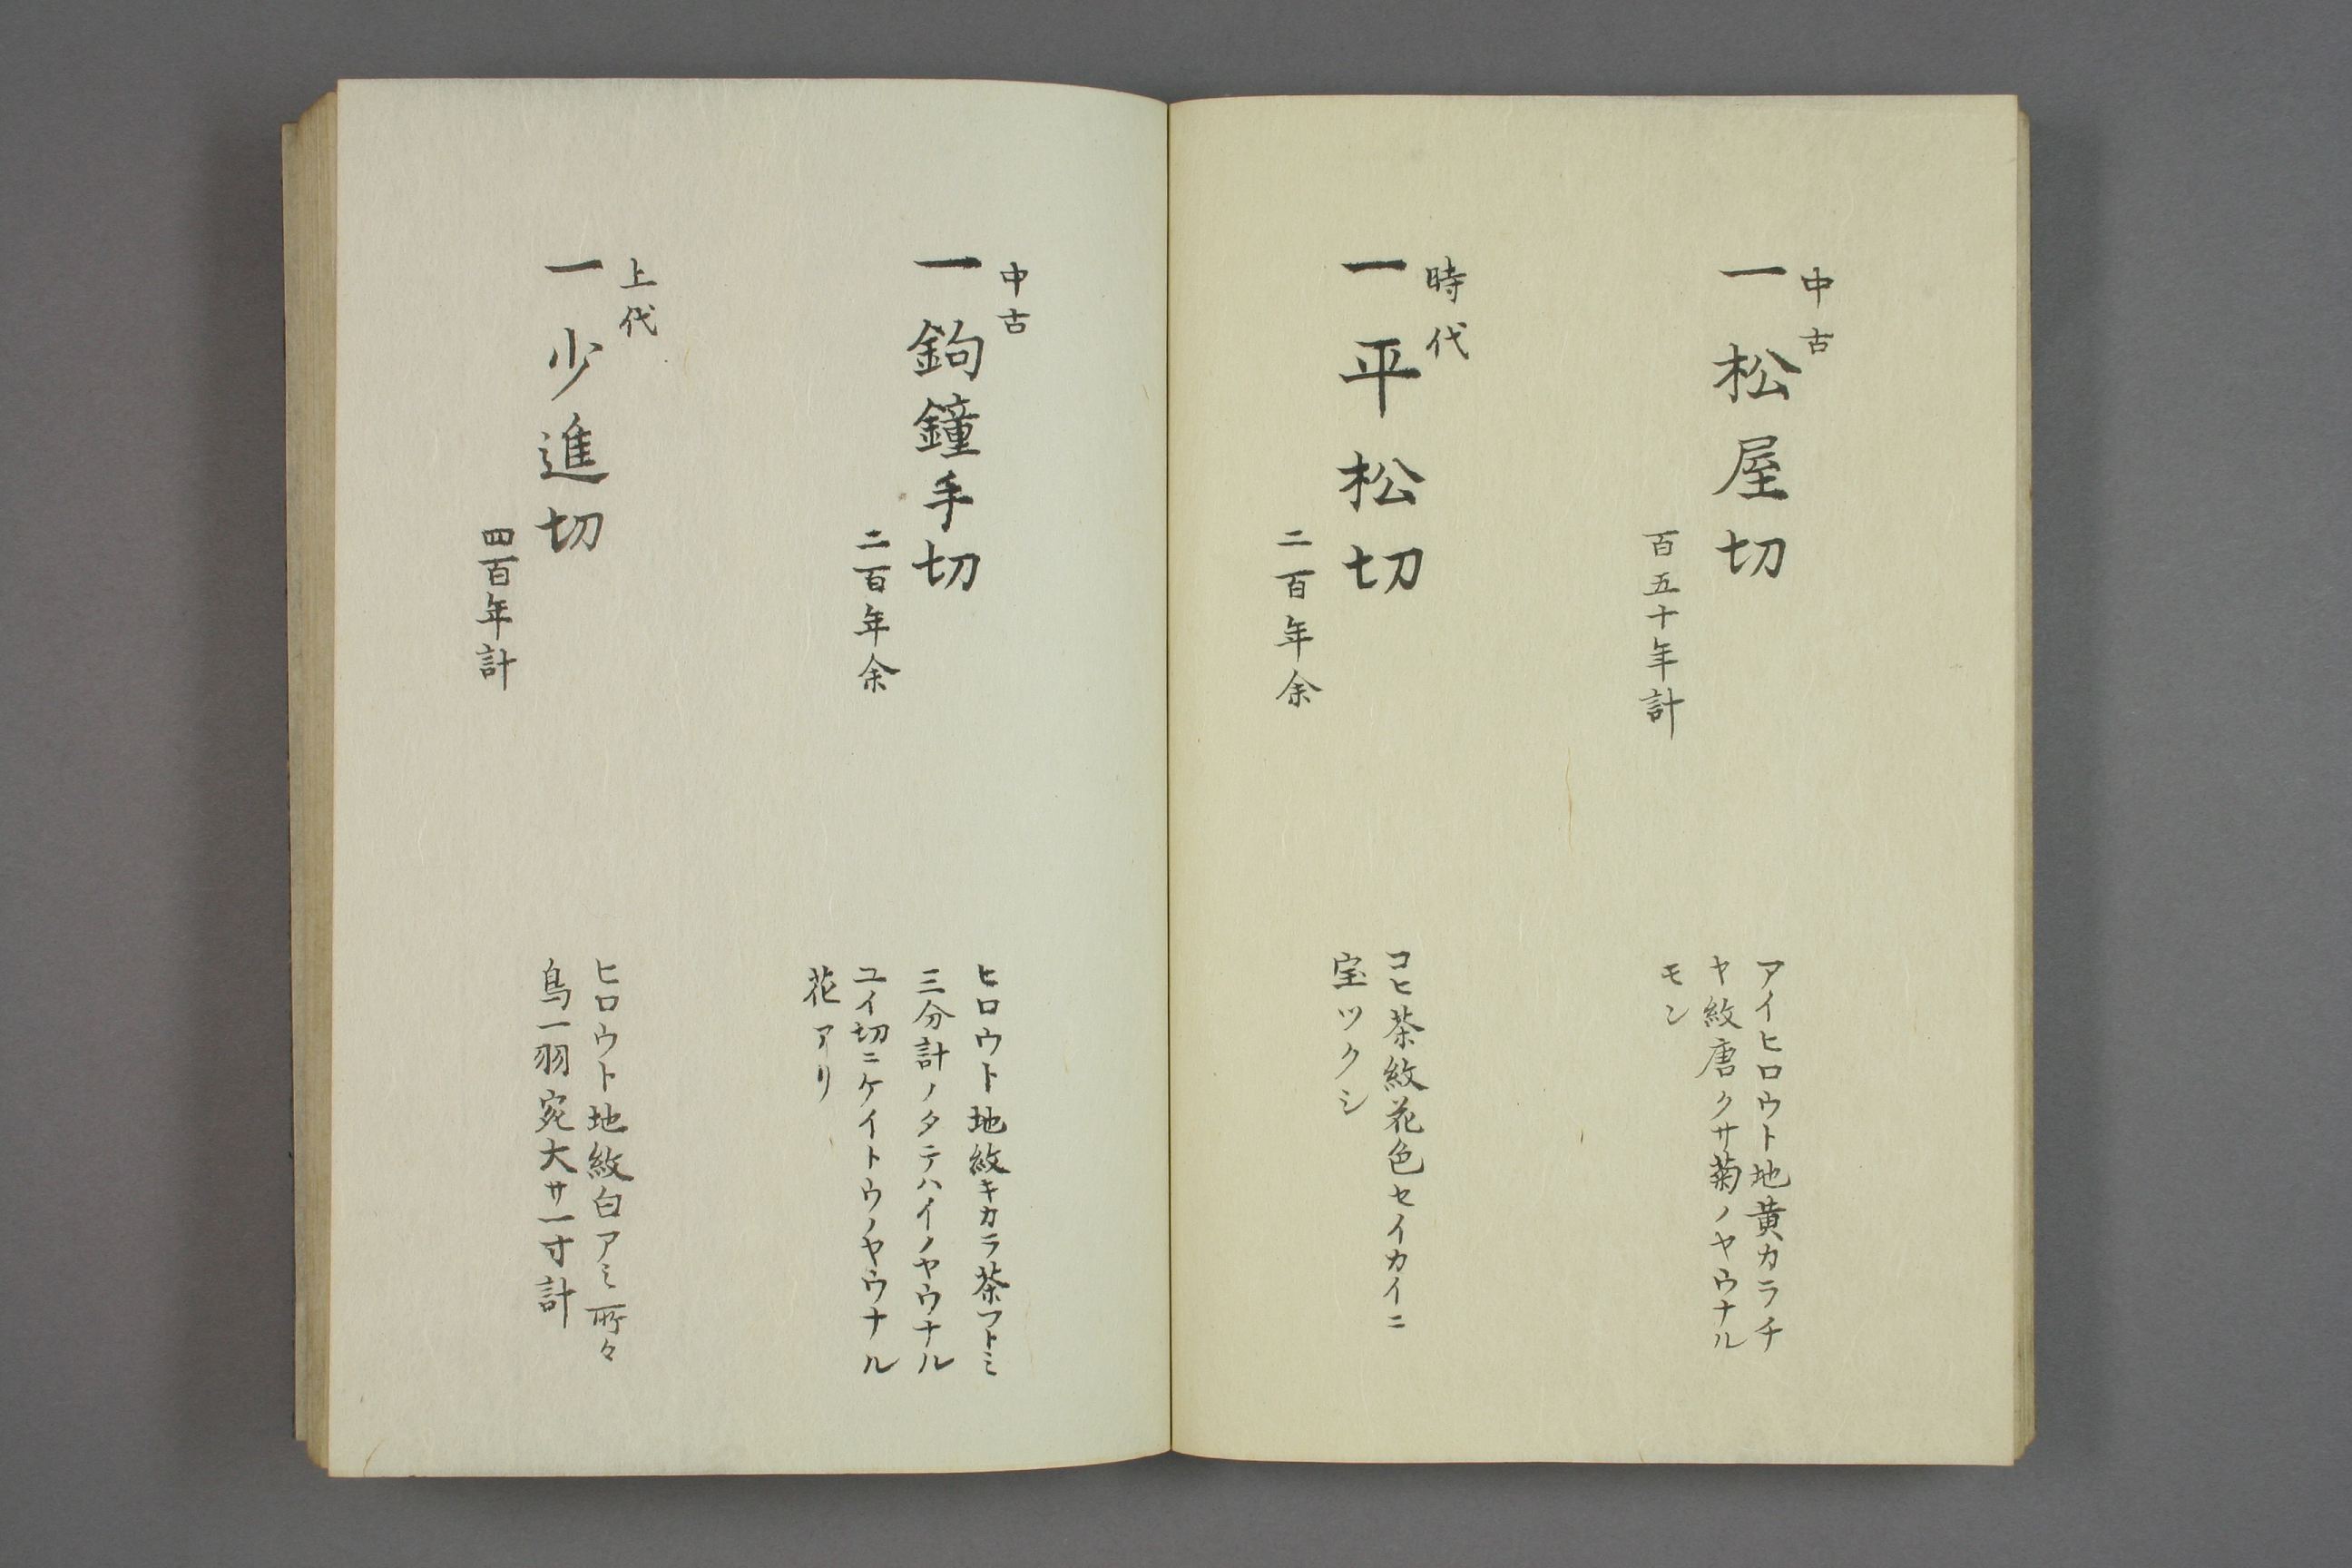 中古
一松屋切
百五十年計
アイヒロウト地黄カラチ
ヤ紋唐クサ菊ノヤウナル
モン
時代
一平松切
二百年余
コヒ茶紋花色セイカイニ
宝ツクシ
中古
一鉤鐘手切
二百年余
ヒロウト地紋キカラ茶フトミ
三分計ノタテハイノヤウナル
ユイ切ニケイトウノヤウナル
花アリ
上代
一少進切
四百年計
ヒロウト地紋白アミ所々
鳥一羽宛大サ一寸計